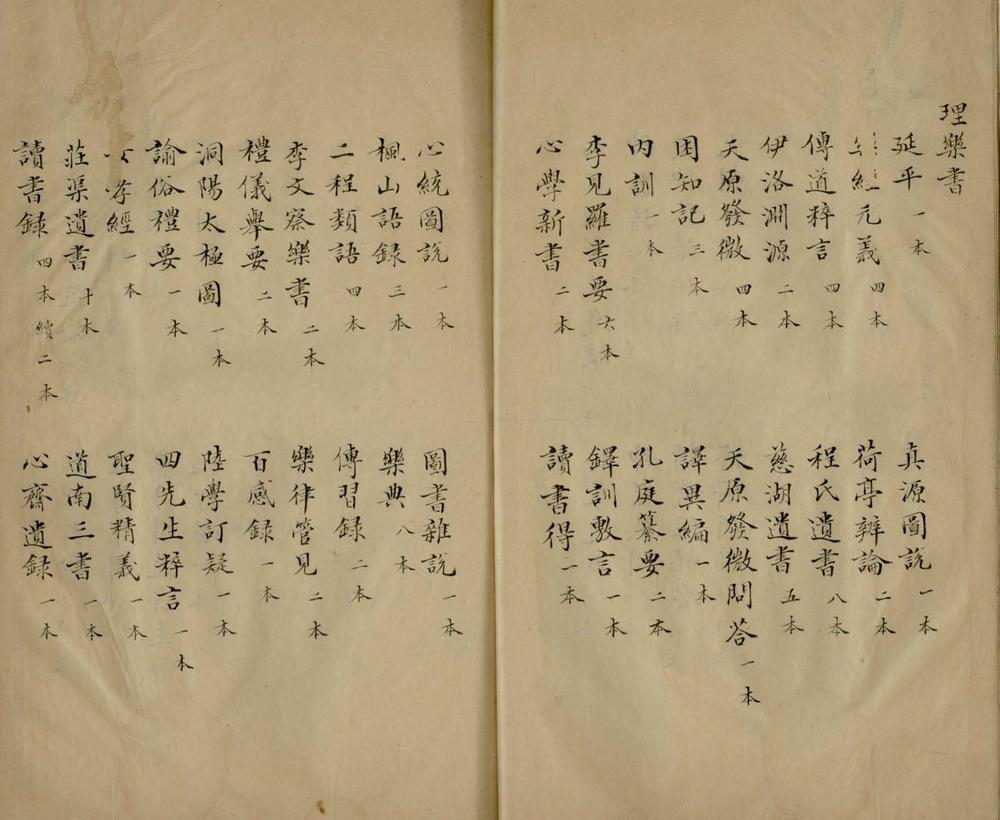 理樂書
延平 一本
真源圖說 一本
經元義 四本
荷亭辨論 二本
傳道粹言 四本
程氏遺書 八本
伊洛淵源 二本
慈湖遺書 五本
天原發微 四本
天原發微問荅 一本
困知記 三本
譯異編 一本
內訓 一本
孔庭纂要 二本
李見羅書要 六本
鐸訓敷言 一本
心學新書 二本
讀書得 一本
心統圖說 一本
圖書雜說 一本
楓山語録 三本
樂典 八本
二程類語 四本
傳習録 二本
李文察樂書 二本
樂律管見 二本
禮儀舉要 二本
百感録 一本
洞陽太極圖 一本
陸學訂疑 一本
諭俗禮要 一本
四先生粹言 一本
女孝經 一本
聖賢精義 一本
莊渠遺書 十本
道南三書 一本
讀書録 四本續二本
心齋遺録 一本